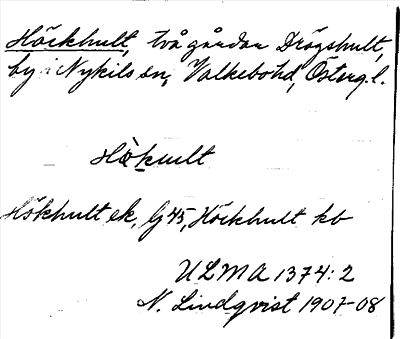 Höckhult, två gårdar Drögshult,
by i Nykils sn, Valkebo hd, Österg.l.
Hökult
Hökhult ek, G 45, Höckhult kb
ULMA 1374:2
N. Lindqvist 1907-08